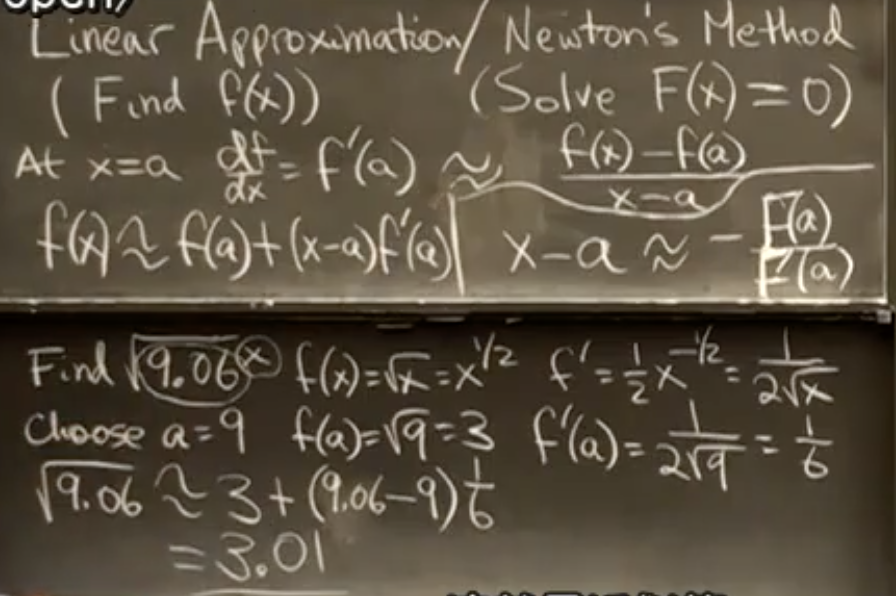 open)
Linear Approximation/ Newton's Method
(Find f(x)) (Solve F(x)=0)
At x=a df/dx = f'(a) ≈ f(x)-f(a)/x-a
f(x) ≈ f(a)+(x-a)f'(a) | x-a ≈ - F(a)/F'(a)
Find √9.06 x f(x)=√x=x^1/2 f'=1/2 x^-1/2 = 1/2√x
Choose a=9 f(a)=√9=3 f'(a)= 1/2√9 = 1/6
√9.06 ≈ 3+(9.06-9)1/6
=3.01